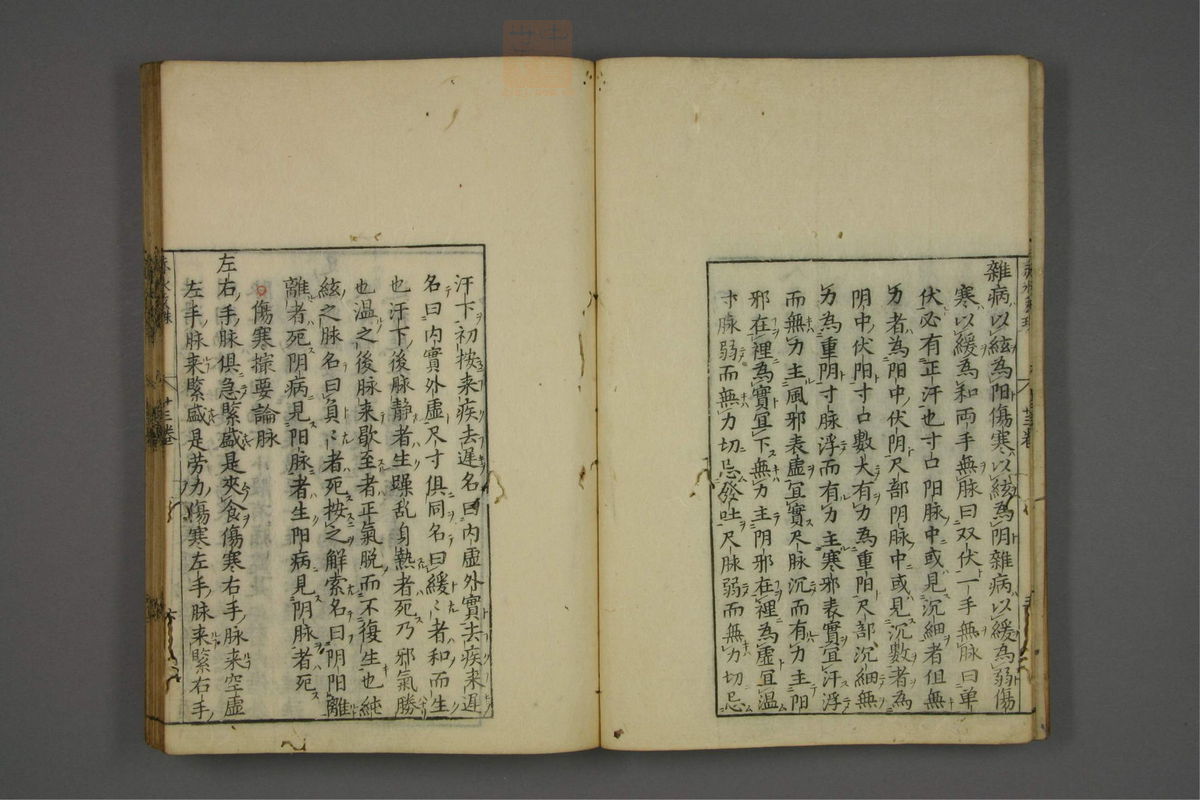 雜病以絃為阳傷寒以絃為阴雜病以緩為弱傷
寒以緩為和両手無脉曰双伏一手無脉曰单
伏必有正汗也寸口阳脉中或見沉細者但無
力者為阳中伏阴尺部阴脉中或見沉数者為
阴中伏阳寸口數大有力為重阳尺部沉細無
力為重阴寸脉浮而有力主寒邪表實冝汗浮
而無力主風邪表虚冝實尺脉沉而有力主阳
邪在裡為實冝下無力主阴邪在裡為虚冝温
寸脉弱而無力切忌發吐尺脉弱而無力切忌
汗下初按来疾去遲名曰内虚外實去疾来遲
名曰内實外虚尺寸俱同名曰緩〻者和而生
也汗下後脉静者生躁乱身熱者死乃邪氣勝
也温之後脉来歇至者正氣脱而不復生也純
絃之脉名曰負〻者死按之解索名曰阴阳離
離者死阴病見阳脉者生阳病見阴脉者死
傷寒撮要論脉
左右手脉俱急緊盛是夾食傷寒右手脉来空虚
左手脉来緊盛是劳力傷寒左手脉来緊右手
十三卷
六